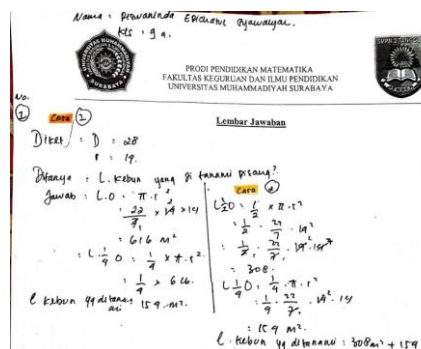 Nama :
Kls : 9 a.
UNIVERSITAS MUHAMMADIYAH
SURABAYA
PRODI PENDIDIKAN MATEMATIKA
FAKULTAS KEGURUAN DAN ILMU PENDIDIKAN
UNIVERSITAS MUHAMMADIYAH SURABAYA
No.
Lembar Jawaban
① Cara ①
Diket : D : 28
r : 14.
Ditanya : L. Kebun yang di tanami pisang?
Jawab : L.O : π . r²
: 22/7 × 14 × 14
: 616 m²
: L. 1/4 O : 1/4 × π . r².
: 1/4 × 616.
L kebun yg ditanami 154 m².
Cara ②
L 1/2 O : 1/2 × π . r²
: 1/2 . 22/7 . 14²
: 1/2 . 22/7 . 14² . 14
: 308.
L 1/4 O : 1/4 . π . r²
: 1/4 . 22/7 . 14² . 14
: 154 m².
L. kebun yg ditanami : 308 m² + 154